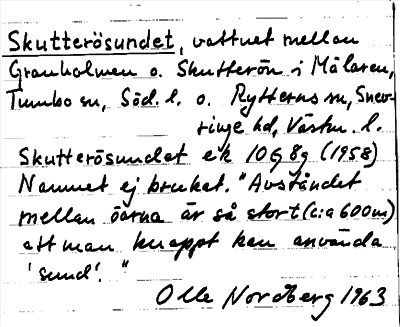 Skutterösundet, vattnet mellan
Granholmen o. Skutterön i Mälaren,
Tumbo sn, Söd. l. o. Rytterns sn, Snev-
ringe hd, Västm. l.
Skutterösundet ek 10G8g (1958)
Namnet ej brukat. "Avståndet
mellan öarna är så stort (c:a 600 m)
att man knappt kan använda
'sund'."
Olle Nordberg 1963